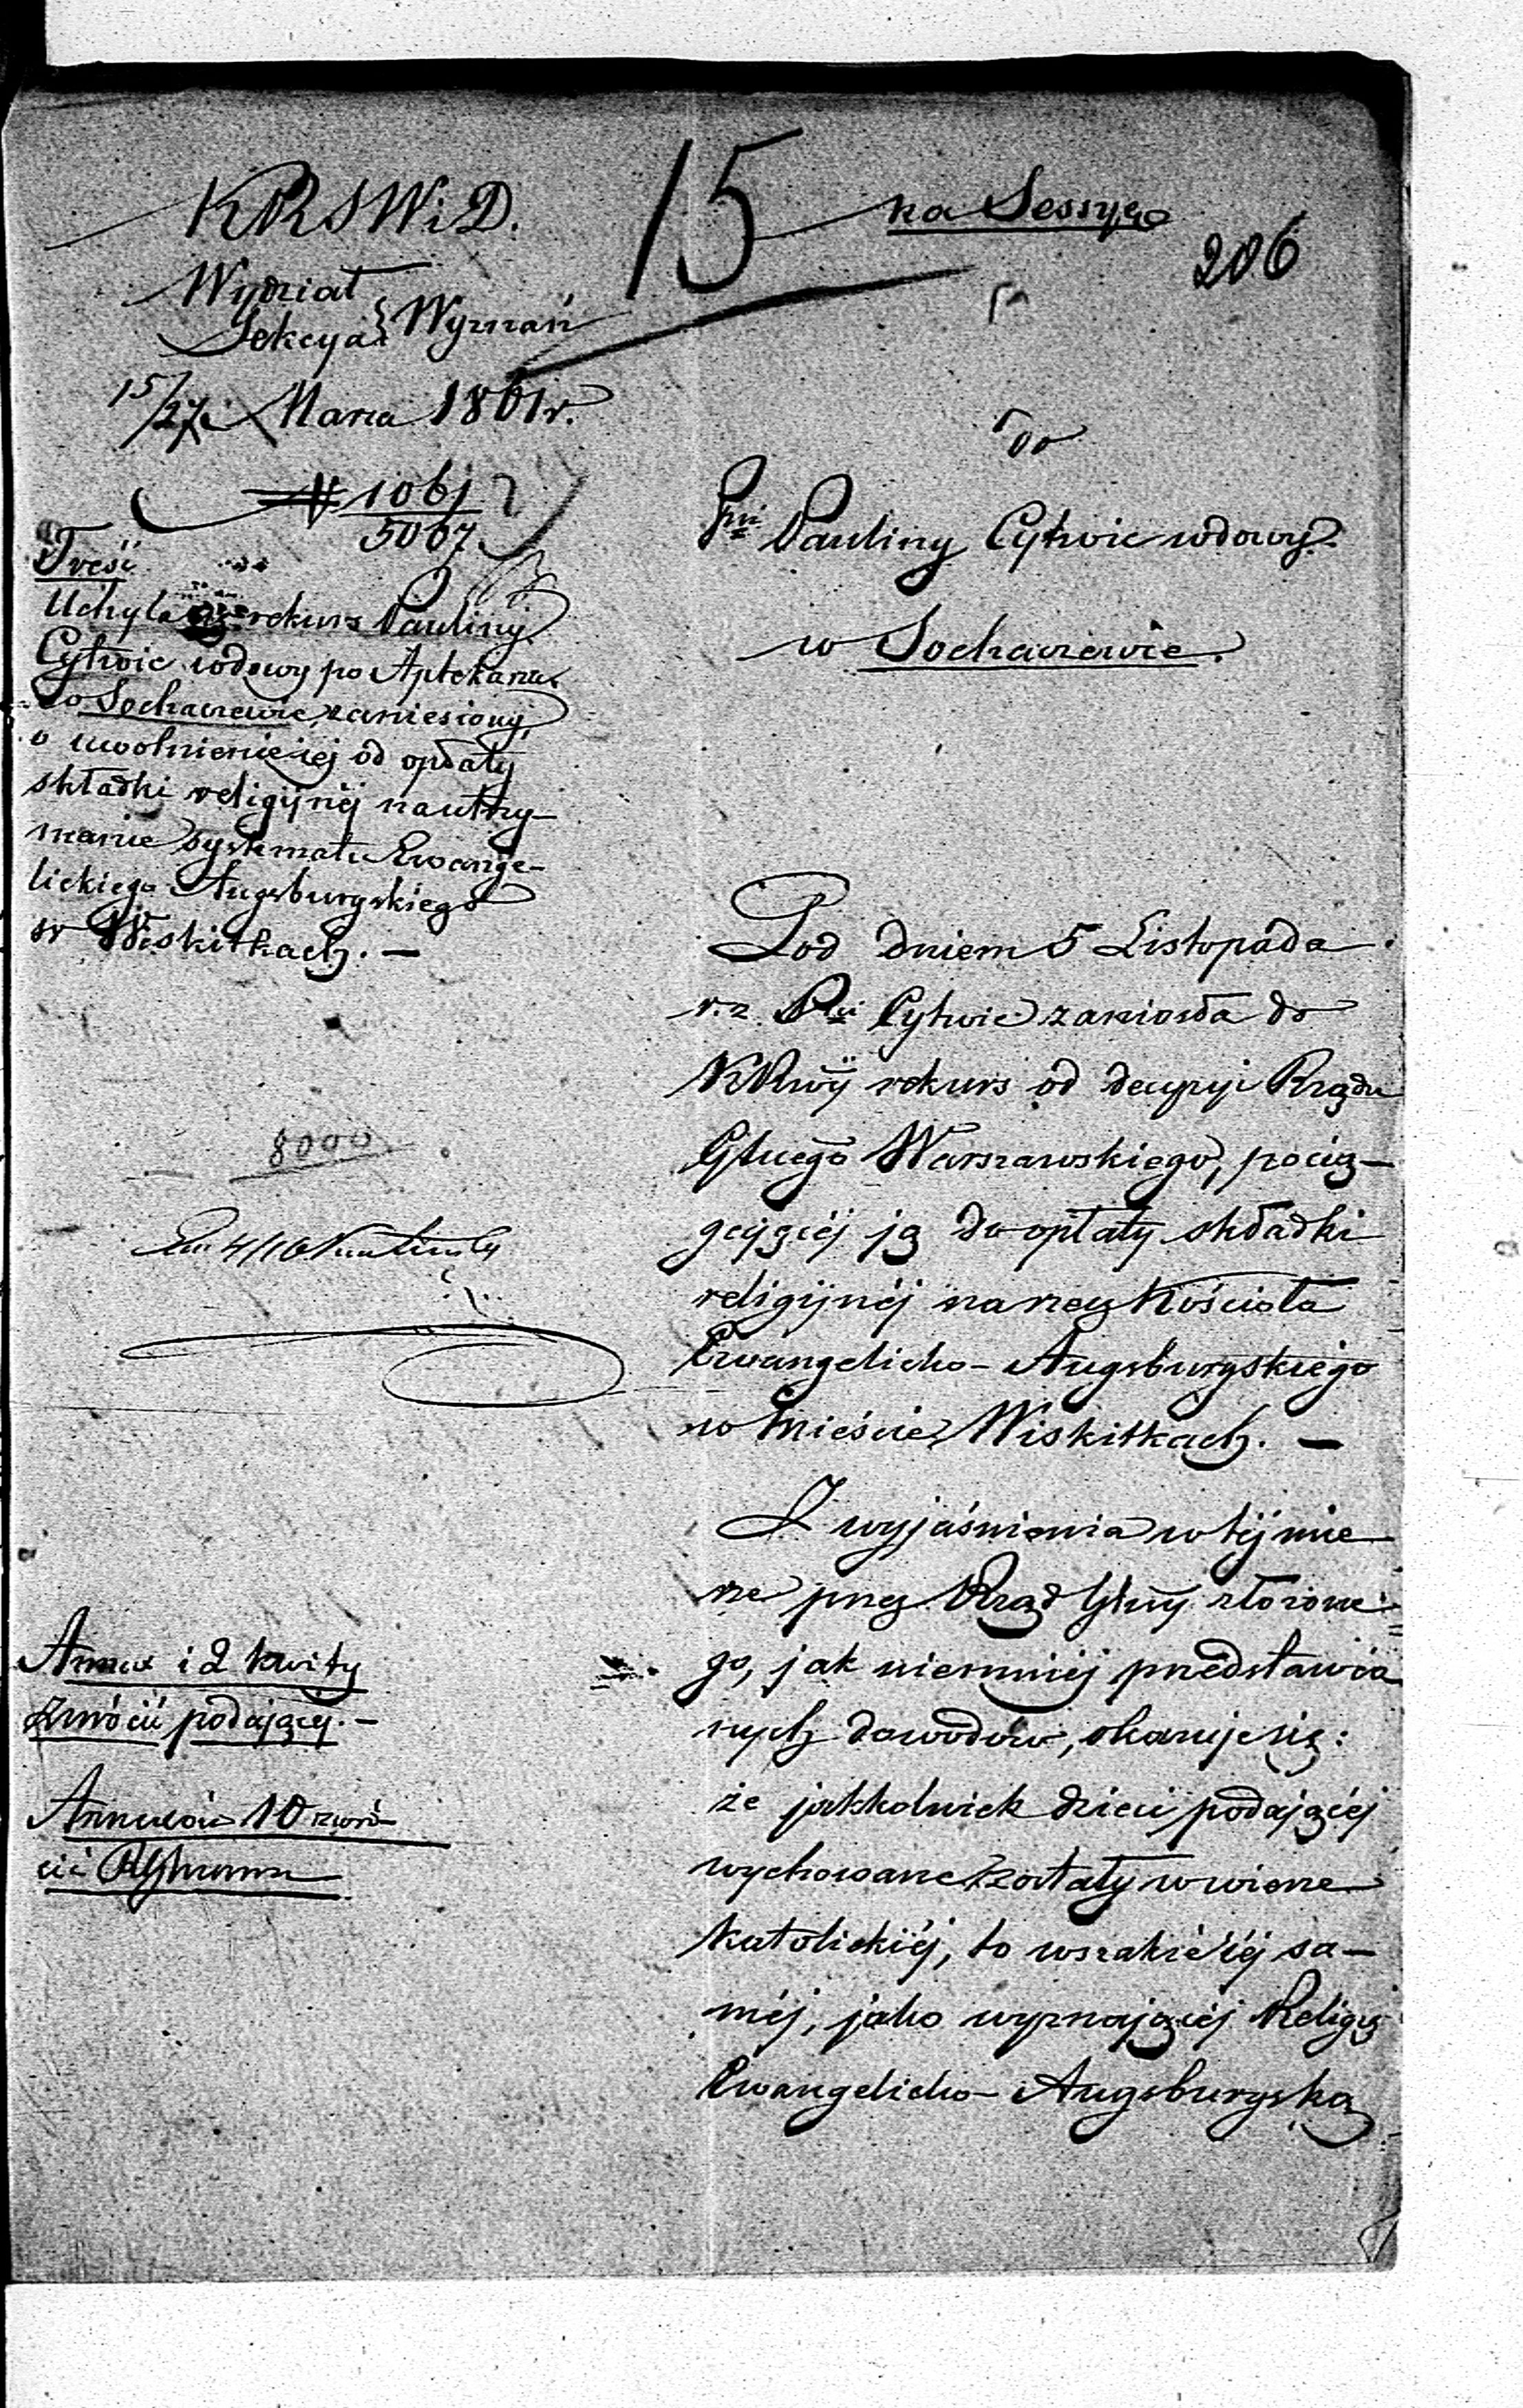 KRSWiD.
15
na Sessyę
206
Wydział
Sekcya } Wyznań
15/27 Marca 1861 r.
№ 1061
5067
Treść
Uchyla rekurs Pauliny
Cytwic wdowy po Aptekarzu
w Sochaczewie, zaniesiony
o uwolnienie jéj od opłaty
składki religijnéj na utrzy-
manie systematu Ewange-
lickiego Augsburgskiego
w Wiskitkach. —
8000
Annex i 2 kwity
zwrócić podającéj. —
Annexów 10 zwró-
cić RGłnemu
do
Pni Pauliny Cytwic wdowy
w Sochaczewie.
Pod dniem 5 Listopada
r. z. Pni Cytwic zaniosła do
KRwéj rekurs od decyzyi Rządu
Głnego Warszawskiego, pocią-
gającéj ją do opłaty składki
religijnéj na rzecz Kościoła
Ewangelicko-Augsburgskiego
w Mieście Wiskitkach. —
Z wyjaśnienia w téj mie
rze przez Rząd Głny złożone-
go, jak niemniéj przedstawio
nych dowodów, okazuje się:
że jakkolwiek dzieci podającéj
wychowane zostały w wierze
katolickiéj, to wszakże jéj sa-
méj, jako wyznającéj Religię
Ewangelicko-Augsburgską